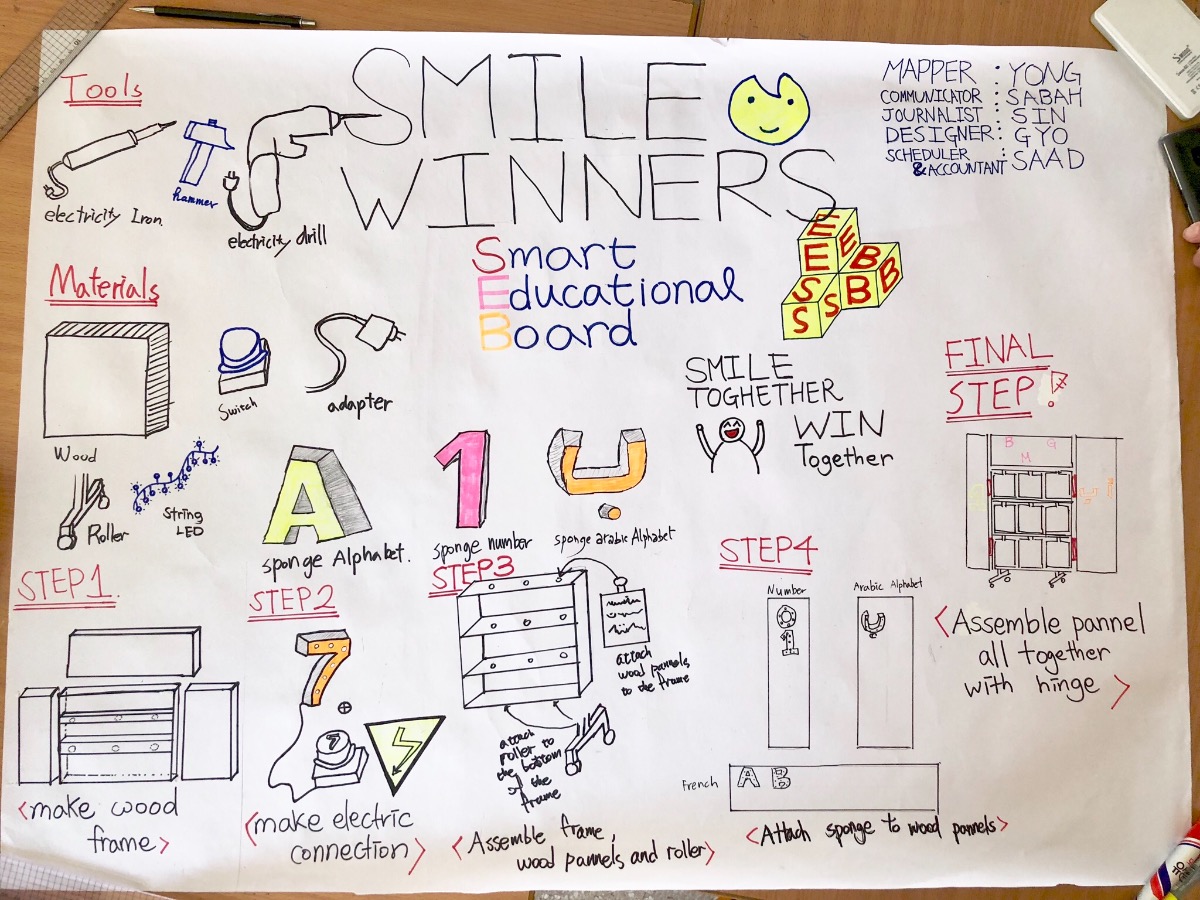 SMILE
WINNERS
Smart
Educational
Board
MAPPER : YONG
COMMUNICATOR : SABAH
JOURNALIST : SIN
DESIGNER : GYO
SCHEDULER
& ACCOUNTANT : SAAD
E
E
E
B
B
B
S
S
S
Tools
electricity Iron
hammer
electricity drill
Materials
Wood
Switch
adapter
Roller
String
LED
A
sponge Alphabet.
1
sponge number
sponge arabic Alphabet
SMILE
TOGHETHER
WIN
Together
STEP1
<make wood
frame>
STEP2
7
7
<make electric
connection>
STEP3
attach
wood pannels
to the frame
attach
roller to
the bottom
of the
frame
<Assemble frame,
wood pannels and roller>
STEP4
Number
1
Arabic Alphabet
French
A B
<Attach sponge to wood pannels>
FINAL
STEP!
B G
M
<Assemble pannel
all together
with hinge>